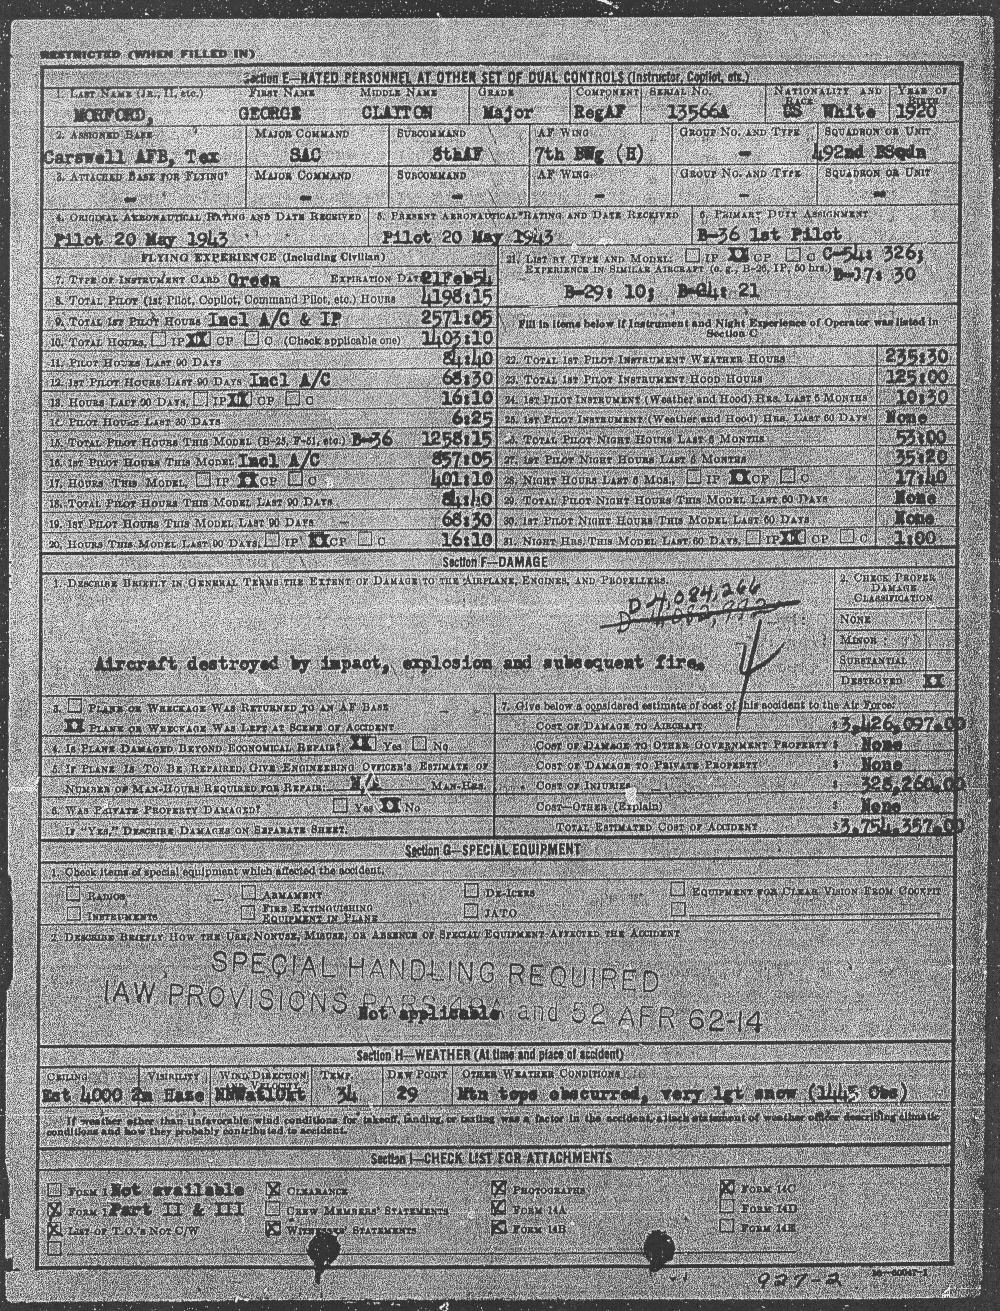 RESTRICTED (WHEN FILLED IN)
Section E—RATED PERSONNEL AT OTHER SET OF DUAL CONTROLS (Instructor, Copilot, etc.)
1. LAST NAME (JR., II, etc.) FIRST NAME MIDDLE NAME GRADE COMPONENT SERIAL NO. NATIONALITY AND RACE YEAR OF BIRTH
MORFORD, GEORGE CLAYTON Major RegAF 13566A US White 1920
2. ASSIGNED BASE MAJOR COMMAND SUBCOMMAND AF WING GROUP NO. AND TYPE SQUADRON OR UNIT
Carswell AFB, Tex SAC 8thAF 7th BWg (H) - 492nd BSqdn
3. ATTACHED BASE FOR FLYING MAJOR COMMAND SUBCOMMAND AF WING GROUP NO. AND TYPE SQUADRON OR UNIT
- - - - - -
4. ORIGINAL AERONAUTICAL RATING AND DATE RECEIVED 5. PRESENT AERONAUTICAL RATING AND DATE RECEIVED 6. PRIMARY DUTY ASSIGNMENT
Pilot 20 May 1943 Pilot 20 May 1943 B-36 1st Pilot
FLYING EXPERIENCE (Including Civilian)
7. TYPE OF INSTRUMENT CARD Green EXPIRATION DATE 21Feb54
8. TOTAL PILOT (1st Pilot, Copilot, Command Pilot, etc.) HOURS 4198:15
9. TOTAL 1ST PILOT HOURS Incl A/C & IP 2571:05
10. TOTAL HOURS, IP XX CP C (Check applicable one) 1403:10
11. PILOT HOURS LAST 90 DAYS 84:40
12. 1ST PILOT HOURS LAST 90 DAYS Incl A/C 68:30
13. HOURS LAST 90 DAYS, IP XX CP C 16:10
14. PILOT HOURS LAST 30 DAYS 6:25
15. TOTAL PILOT HOURS THIS MODEL (B-25, F-51, etc.) B-36 1258:15
16. 1ST PILOT HOURS THIS MODEL Incl A/C 857:05
17. HOURS THIS MODEL, IP XX CP C 401:10
18. TOTAL PILOT HOURS THIS MODEL LAST 90 DAYS 84:40
19. 1ST PILOT HOURS THIS MODEL LAST 90 DAYS 68:30
20. HOURS THIS MODEL LAST 90 DAYS, IP XX CP C 16:10
21. LIST BY TYPE AND MODEL: IP XX CP C C-54: 326;
EXPERIENCE IN SIMILAR AIRCRAFT (e. g., B-25, IP, 50 hrs.) B-17: 30
B-29: 10; B-24: 21
Fill in items below if Instrument and Night Experience of Operator was listed in
Section C
22. TOTAL 1ST PILOT INSTRUMENT WEATHER HOURS 235:30
23. TOTAL 1ST PILOT INSTRUMENT HOOD HOURS 125:00
24. 1ST PILOT INSTRUMENT (Weather and Hood) HRS. LAST 6 MONTHS 10:30
25. 1ST PILOT INSTRUMENT (Weather and Hood) HRS. LAST 60 DAYS None
26. TOTAL PILOT NIGHT HOURS LAST 6 MONTHS 53:00
27. 1ST PILOT NIGHT HOURS LAST 6 MONTHS 35:20
28. NIGHT HOURS LAST 6 MOS., IP XX CP C 17:40
29. TOTAL PILOT NIGHT HOURS THIS MODEL LAST 60 DAYS None
30. 1ST PILOT NIGHT HOURS THIS MODEL LAST 60 DAYS None
31. NIGHT HRS. THIS MODEL LAST 60 DAYS, IP XX CP C 1:00
Section F—DAMAGE
1. DESCRIBE BRIEFLY IN GENERAL TERMS THE EXTENT OF DAMAGE TO THE AIRPLANE, ENGINES, AND PROPELLERS.
D 4,084,266
Aircraft destroyed by impact, explosion and subsequent fire.
2. CHECK PROPER
DAMAGE
CLASSIFICATION
NONE
MINOR
SUBSTANTIAL
DESTROYED XX
3. PLANE OR WRECKAGE WAS RETURNED TO AN AF BASE
XX PLANE OR WRECKAGE WAS LEFT AT SCENE OF ACCIDENT
4. IS PLANE DAMAGED BEYOND ECONOMICAL REPAIR? XX YES NO
5. IF PLANE IS TO BE REPAIRED, GIVE ENGINEERING OFFICER'S ESTIMATE OF
NUMBER OF MAN-HOURS REQUIRED FOR REPAIR: N/A MAN-HRS.
6. WAS PRIVATE PROPERTY DAMAGED? YES XX NO
IF "YES," DESCRIBE DAMAGES ON SEPARATE SHEET.
7. Give below a considered estimate of cost of this accident to the Air Force:
COST OF DAMAGE TO AIRCRAFT $3,426,097.00
COST OF DAMAGE TO OTHER GOVERNMENT PROPERTY $ None
COST OF DAMAGE TO PRIVATE PROPERTY $ None
COST OF INJURIES $ 328,260.00
COST—OTHER (Explain) $ None
TOTAL ESTIMATED COST OF ACCIDENT $3,754,357.00
Section G—SPECIAL EQUIPMENT
1. Check items of special equipment which affected the accident.
RADIOS ARMAMENT DE-ICERS EQUIPMENT FOR CLEAR VISION FROM COCKPIT
INSTRUMENTS FIRE EXTINGUISHING EQUIPMENT IN PLANE JATO
2. DESCRIBE BRIEFLY HOW THE USE, NONUSE, MISUSE, OR ABSENCE OF SPECIAL EQUIPMENT AFFECTED THE ACCIDENT
SPECIAL HANDLING REQUIRED
IAW PROVISIONS PARS 49A and 52 AFR 62-14
Not applicable
Section H—WEATHER (At time and place of accident)
CEILING VISIBILITY WIND DIRECTION AND VELOCITY TEMP. DEW POINT OTHER WEATHER CONDITIONS
Est 4000 2m Haze NNWat10kt 34 29 Mtn tops obscurred, very lgt snow (1445 Obs)
If weather other than unfavorable wind conditions for takeoff, landing, or taxiing was a factor in the accident, attach statement of weather officer describing climatic
conditions and how they probably contributed to accident.
Section I—CHECK LIST FOR ATTACHMENTS
FORM 1 Not available CLEARANCE PHOTOGRAPHS FORM 14C
FORM 1 Part II & III CREW MEMBERS' STATEMENTS FORM 14A FORM 14D
LIST OF T.O.'S NOT C/W WITNESSES' STATEMENTS FORM 14B FORM 14E
927-2